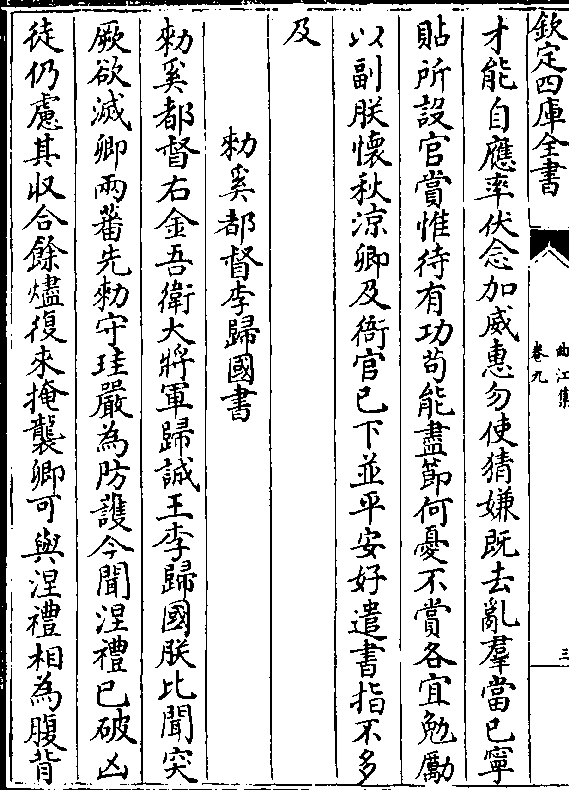 欽定四庫全書
曲江集
卷九
三
才能自應率伏念加威惠勿使猜嫌既去亂羣當已寧
貼所設官賞惟待有功苟能盡節何憂不賞各宜勉勵
以副朕懷秋涼卿及衙官已下並平安好遣書指不多
及
勅奚都督李歸國書
勅奚都督右金吾衛大將軍歸誠王李歸國朕比聞突
厥欲滅卿兩蕃先勅守珪嚴為防護今聞涅禮已破凶
徒仍慮其収合餘燼復來掩襲卿可與涅禮相為腹背